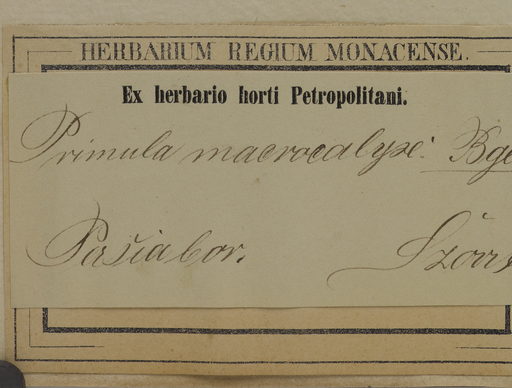 HERBARIUM REGIUM MONACENSE.
Ex herbario horti Petropolitani.
Primula macrocalyx: Bge
Persia bor.